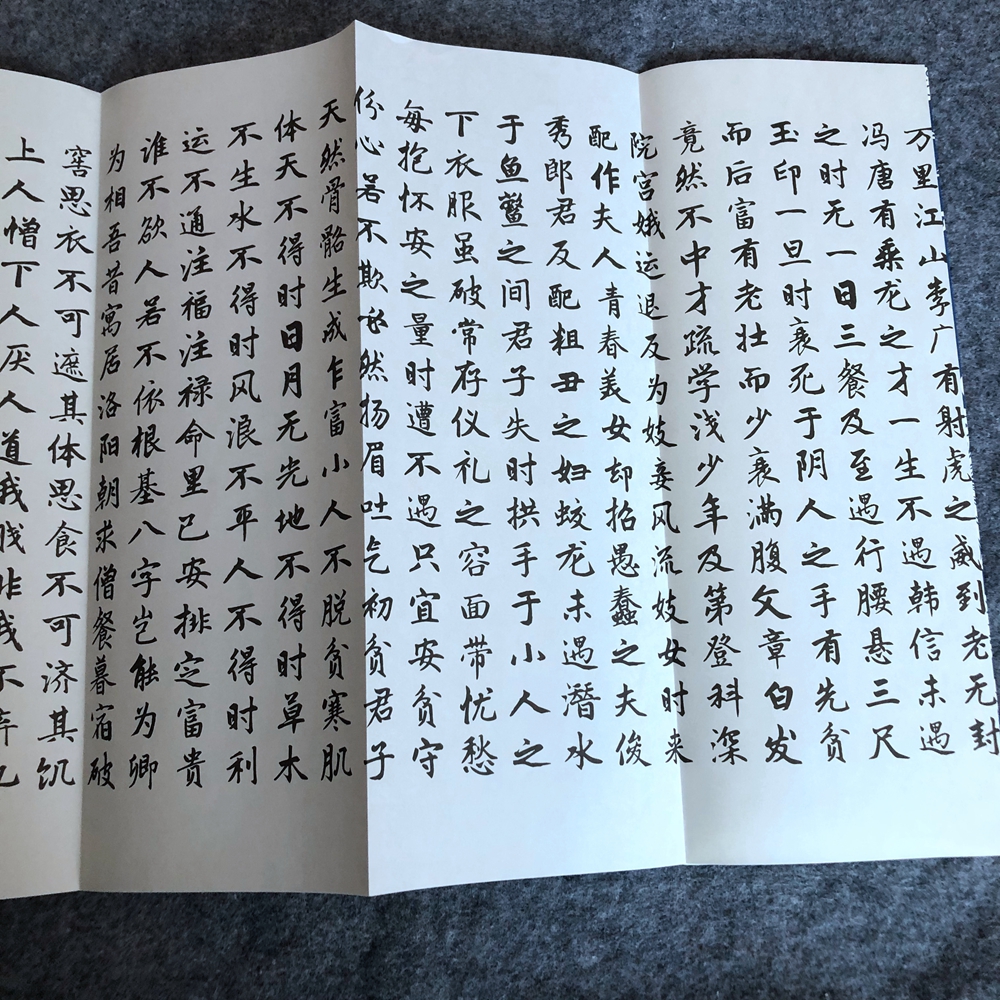 万里江山李广有射虎之威到老无封
冯唐有乘龙之才一生不遇韩信未遇
之时无一日三餐及至遇行腰悬三尺
玉印一旦时衰死于阴人之手有先贫
而后富有老壮而少衰满腹文章白发
竟然不中才疏学浅少年及第登科深
院宫娥运退反为妓妾风流妓女时来
配作夫人青春美女却招愚蠢之夫俊
秀郎君反配粗丑之妇蛟龙未遇潜水
于鱼鳖之间君子失时拱手于小人之
下衣服虽破常存仪礼之容面带忧愁
每抱怀安之量时遭不遇只宜安贫守
份心若不欺必然扬眉吐气初贫君子
天然骨骼生成乍富小人不脱贫寒肌
体天不得时日月无光地不得时草木
不生水不得时风浪不平人不得时利
运不通注福注禄命里已安排定富贵
谁不欲人若不依根基八字岂能为卿
为相吾昔寓居洛阳朝求僧餐暮宿破
窖思衣不可遮其体思食不可济其饥
上人憎下人厌人道我贱非我不弃也